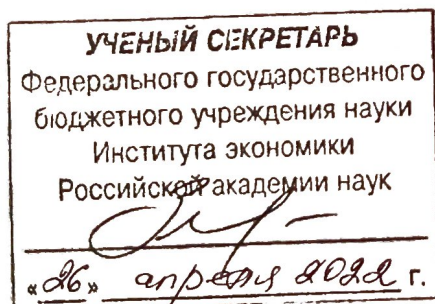 УЧЕНЫЙ СЕКРЕТАРЬ
Федерального государственного
бюджетного учреждения науки
Института экономики
Российской академии наук
«26» апреля 2022 г.